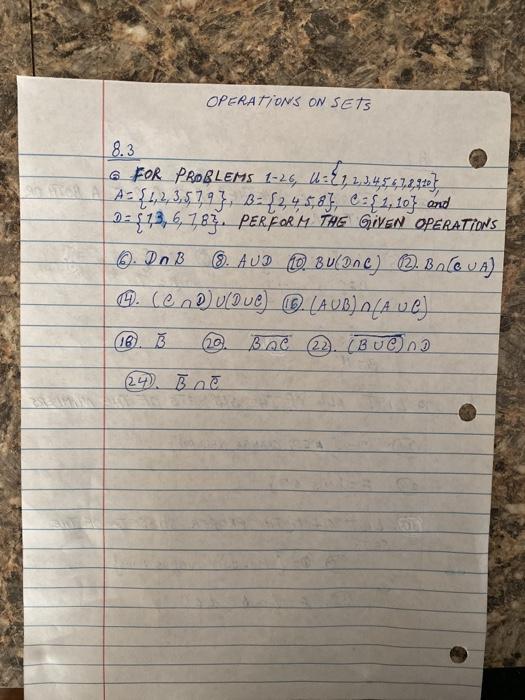 OPERATIONS ON SETS
8.3
FOR PROBLEMS 1-26, U={1,2,3,4,5,6,7,8,9,10},
A={1,2,3,5,7,9}, B={2,4,5,8}, C={1,10} and
D={1,3,6,7,8}. PERFORM THE GIVEN OPERATIONS
⑥. D∩B ⑧. A∪D ⑩. B∪(D∩C) ⑫. B∩(C∪A)
⑭. (C∩D)∪(D∪C) ⑯. (A∪B)∩(A∪C)
⑱. B̅ ⑳. B̅∩̅C̅ ㉒. (̅B̅∪̅C̅)̅∩D
㉔. B̅∩C̅